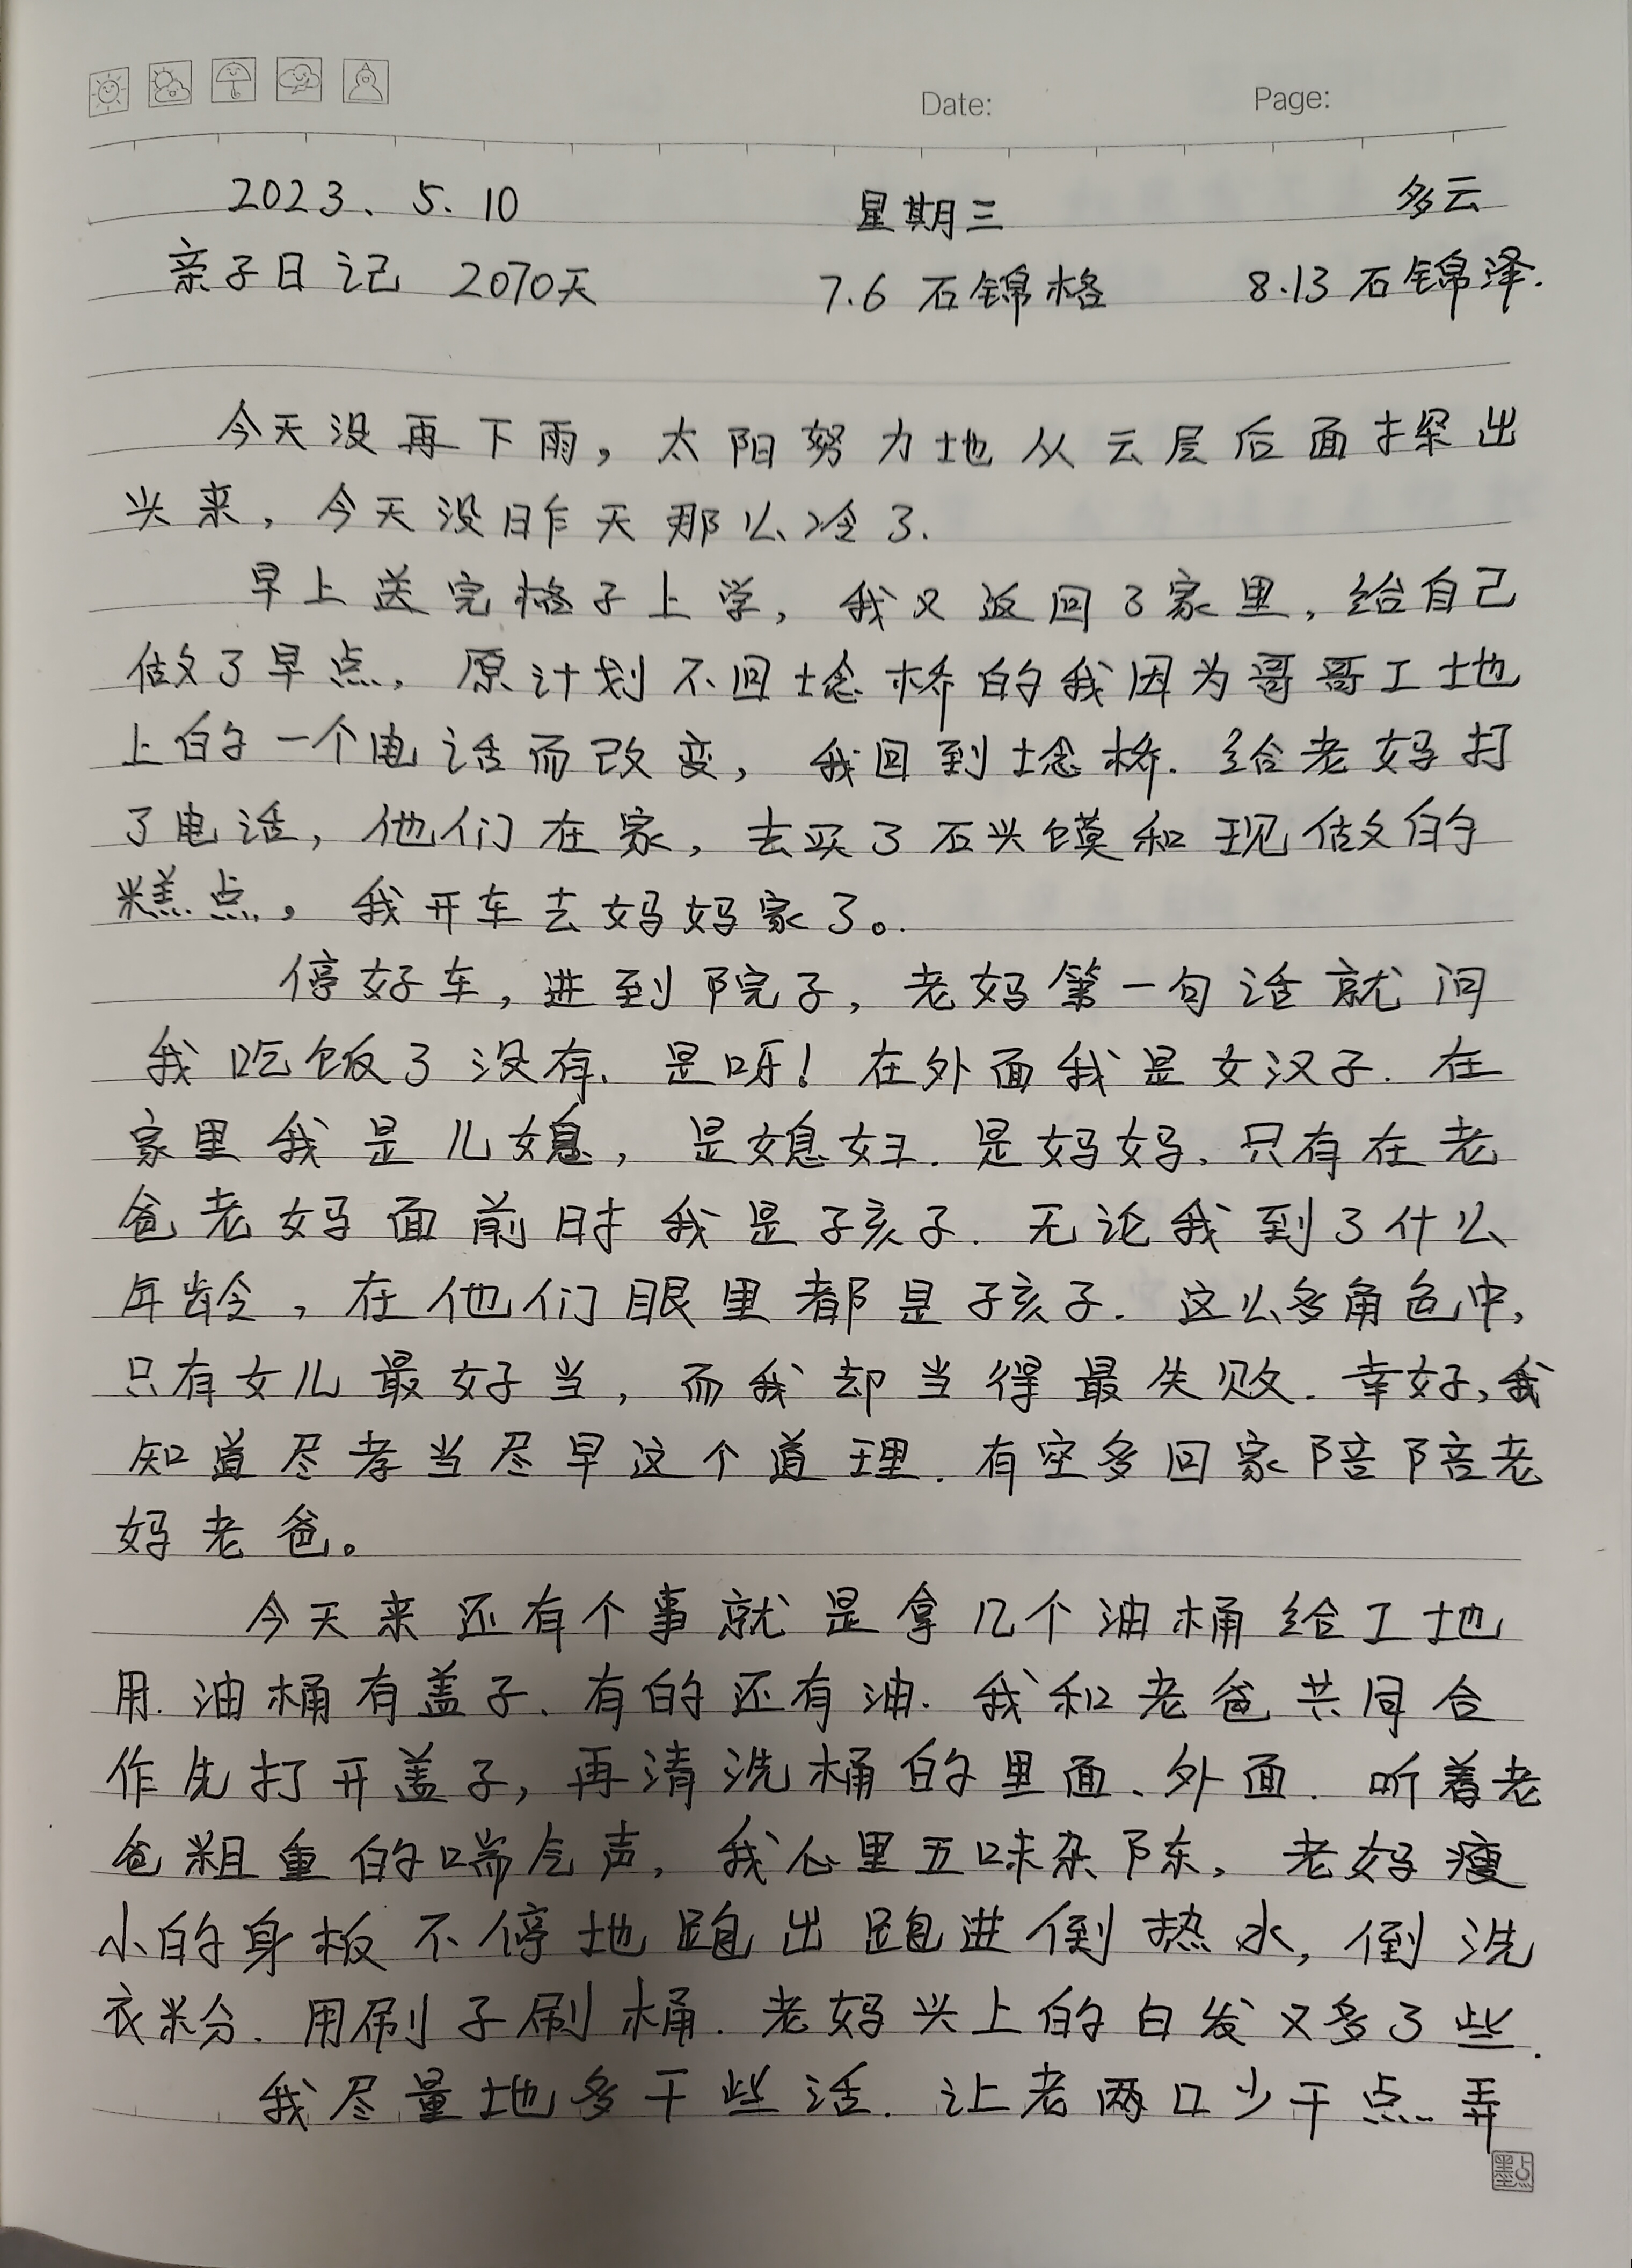 Date: Page:
2023、5.10 星期三 多云
亲子日记 2070天 7.6 石锦格 8.13 石锦泽.
今天没再下雨，太阳努力地从云层后面探出
头来，今天没昨天那么冷了.
早上送完格子上学，我又返回了家里，给自己
做了早点，原计划不回埝桥的我因为哥哥工地
上的一个电话而改变，我回到埝桥.给老妈打
了电话，他们在家，去买了石头馍和现做的
糕点，我开车去妈妈家了。
停好车，进到院子，老妈第一句话就问
我吃饭了没有.是呀！在外面我是女汉子.在
家里我是儿媳，是媳妇.是妈妈.只有在老
爸老妈面前时我是孩子.无论我到了什么
年龄，在他们眼里都是孩子.这么多角色中，
只有女儿最好当，而我却当得最失败.幸好，我
知道尽孝当尽早这个道理.有空多回家陪陪老
妈老爸。
今天来还有个事就是拿几个油桶给工地
用.油桶有盖子、有的还有油.我和老爸共同合
作先打开盖子，再清洗桶的里面、外面.听着老
爸粗重的喘气声，我心里五味杂陈，老妈瘦
小的身板不停地跑出跑进倒热水，倒洗
衣粉.用刷子刷桶.老妈头上的白发又多了些.
我尽量地多干些活.让老两口少干点.弄
墨点